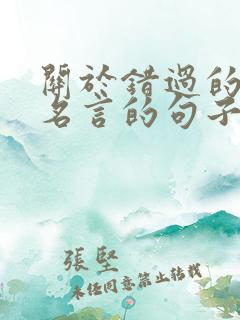 關於錯過的
名言的句子
張堅
未經同意禁止轉載